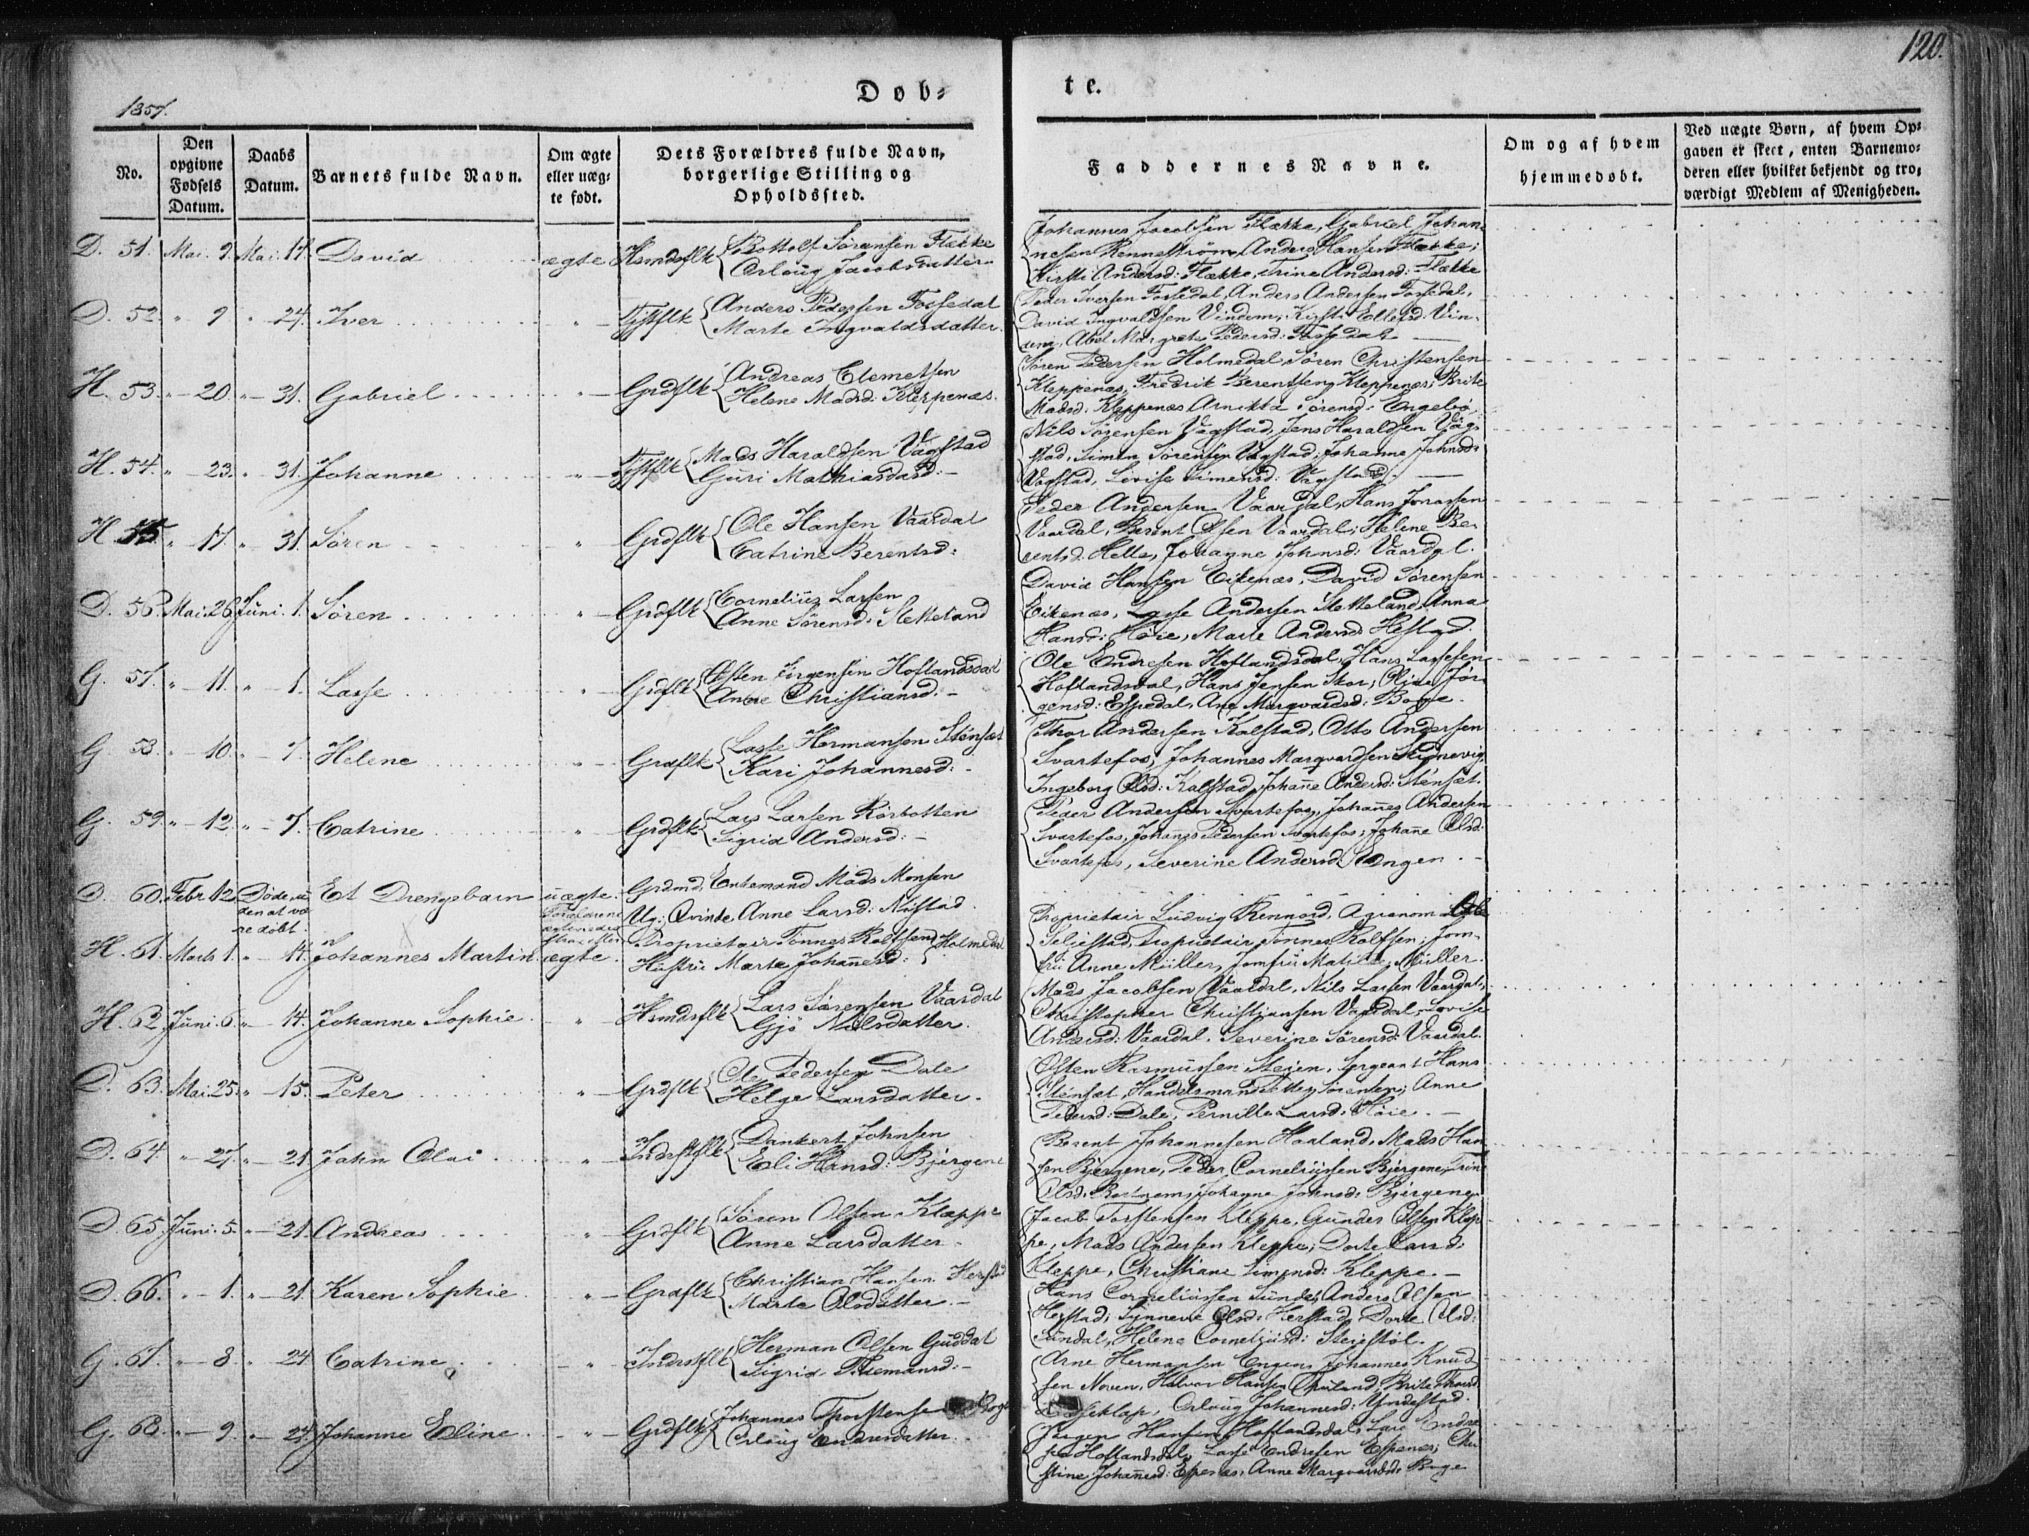 120.
1857.
Døb-
te.
No.
Den opgivne Fødsels Datum.
Daabs Datum.
Barnets fulde Navn.
Om ægte eller uægte født.
Dets Forældres fulde Navn, borgerlige Stilling og Opholdssted.
Faddernes Navne.
Om og af hvem hjemmedøbt.
Ved uægte Børn, af hvem Opgaven er skeet, enten Barnemoderen eller hvilket bekjendt og troværdigt Medlem af Menigheden.
D. 51. Mai. 9. Mai. 17. David ægte Hsmdsflk Bottolf Sørensen Flække
Orloug Jacobsdatter
Johannes Jacobsen Flække, Gabriel Johan-
nesen Rennestrøm, Anders Hansen Flække,
Kirsti Andersd: Flække, Trine Andersd: Flække
D. 52. " 9 " 24. Iver " Anders Pedersen Fossedal
Marte Ingvaldsdatter
Peder Iversen Fossedal, Anders Andersen Fossedal,
David Ingvaldsen Vindem, Kirsti Ellefsd: Vin-
dem, Abel Margrete Pedersd: Fossedal
H. 53. " 20. " 31. Gabriel " Grdflk Andreas Clemetsen
Helene Madsd: Kleppenæs.
Søren Pedersen Holmedal, Søren Christensen
Kleppenæs, Fredrik Berentsen Kleppenæs, Brite
Madsd: Kleppenæs Sørensd: Engebø
H. 54. " 23. " 31. Johanne " Mads Haraldsen Vagstad
Guri Mathiasdasd:
Nils Sørensen Vagstad, Jens Haraldsen Vag-
stad, Simen Sørensen Vagstad, Johanne Johnsd:
Vagstad, Lovise Simensd: Vagstad
H. 55 " 17. " 31. Søren " Grdflk Ole Hansen Vaardal
Catrine Berentsd:
Peder Andersen Vaardal, Hans Jonassen
Vaardal, Berent Olsen Vaardal, Helene Be-
rentsd. Helle, Johanne Johnsd: Vaardal.
D. 56. Mai. 26. Juni. 1. Søren " Grdflk Cornelius Larsen
Anne Sørensd: Sletteland
David Hansen Eikenæs, David Sørensen
Eikenæs, Lasse Andersen Sletteland, Anna
Hansd: Høie, Marte Andersd Hestad.
G. 57. " 11. " 1. Lasse " Grdflk Østen Jørgensen Hoflandsdal
Anne Christiansd:
Ole Endresen Hoflandsdal, Hans Lassesen
Hoflandsdal, Hans Jensen Skor, Oline Jør-
gensd: Espedal, Ane Marqvardsd: Boge.
G. 58. " 10. " 7. Helene " Grdflk Lasse Hermansen Stensæt
Kari Johannesd:
Thor Andersen Kalstad, Otto Andersen
Svartefos, Johannes Marqvardsen
Ingeborg Olsd: Kalstad, Johanne Andersd: Stensæt.
G. 59. " 12. " 7. Catrine " Grdflk Lars Larsen Rørbotten
Sigrid Andersd:
Peder Andersen Svartefos, Johannes Andersen
Svartefos, Johannes Pedersen Svartefos, Johanne Olsd:
Svartefos, Severine Andersd. Rongen.
D. 60. Febr. 12. Døde u-
den at væ-
re døbt. Et Drengebarn uægte. Grdmd, Enkemand Mads Monsen
Ug: Qvinde, Anne Larsd: Nistad.
H. 61. Marts 1. " 14. Johannes Martin. ægte. Proprietair Tønnes Rolfsen
Hustru Marte Johannesd: Holmedal
Proprietair Ludvig Rennord, Agronom
Seljestad, Proprietair Tønnes Rolfsen, Jom-
fru Anne Müller, Jomfru Matilde Müller.
H. 62. Juni. 6. " 14. Johanne Sophie. " Hsmdsflk Lars Sørensen Vaardal
Gjø Nilsdatter.
Mads Jacobsen Vaardal, Nils Larsen Vaardal,
Christopher Christiansen Vaardal, Lovise
Andersd: Vaardal, Severine Sørensd: Vaardal.
D. 63. Mai. 25. " 15. Peter " Grdflk Ole Pedersen Dale
Helge Larsdatter.
Østen Rasmussen Steien, Sergeant Hans
Stensæt, Handelsmand Sørensen, Anne
Pedersd: Dale, Pernille Larsd: Høie.
D. 64. " 27. " 21. John Olai. " Indrstflk Dankert Johnsen
Eli Hansd: Bjergene
Berent Johannesen Haaland, Mads Han-
sen Bjergene, Peder Corneliussen Bjergene, Trine
Olsd: Johanne Johnsd: Bjergene
D. 65. Juni. 5. " 21. Andreas " Grdflk Søren Olsen Kleppe
Anne Larsdatter
Jacob Torstensen Kleppe, Gunder Olsen Klep-
pe, Mads Andersen Kleppe, Dorte Larsd:
Kleppe, Christiane Simensd: Kleppe.
D. 66. " 1. " 21. Karen Sophie. " Grdflk Christian Hansen Herstad
Marte Olsdatter
Hans Corneliussen Sunde, Anders Olsen
Herstad, Synneve Olsd: Herstad, Dorte Olsd:
Sundal, Helene Corneliusd: Steiestøl.
G. 67. " 8. " 24. Catrine " Indrstflk Herman Olsen Guddal
Sigrid
Arne Hermansen Engen, Johannes Knud-
sen Noven, Halvor Hansen Brite
Orloug Johannesd: Yndestad.
G. 68. " 9. " 24. Johanne Eline. " Grdflk Johannes Thorstensen Boge
Orloug Endresdatter
Jørgen Hansen Hoflandsdal, Lars Endre-
sen Hoflandsdal, Lasse Endresen Espenæs, Chri-
stine Johannesd: Espenæs, Anne Marqvardsd: Boge